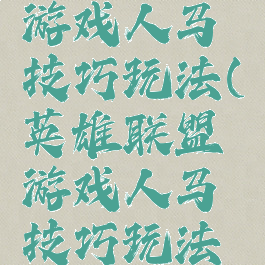 游戏人马
技巧玩法(
英雄联盟
游戏人马
技巧玩法